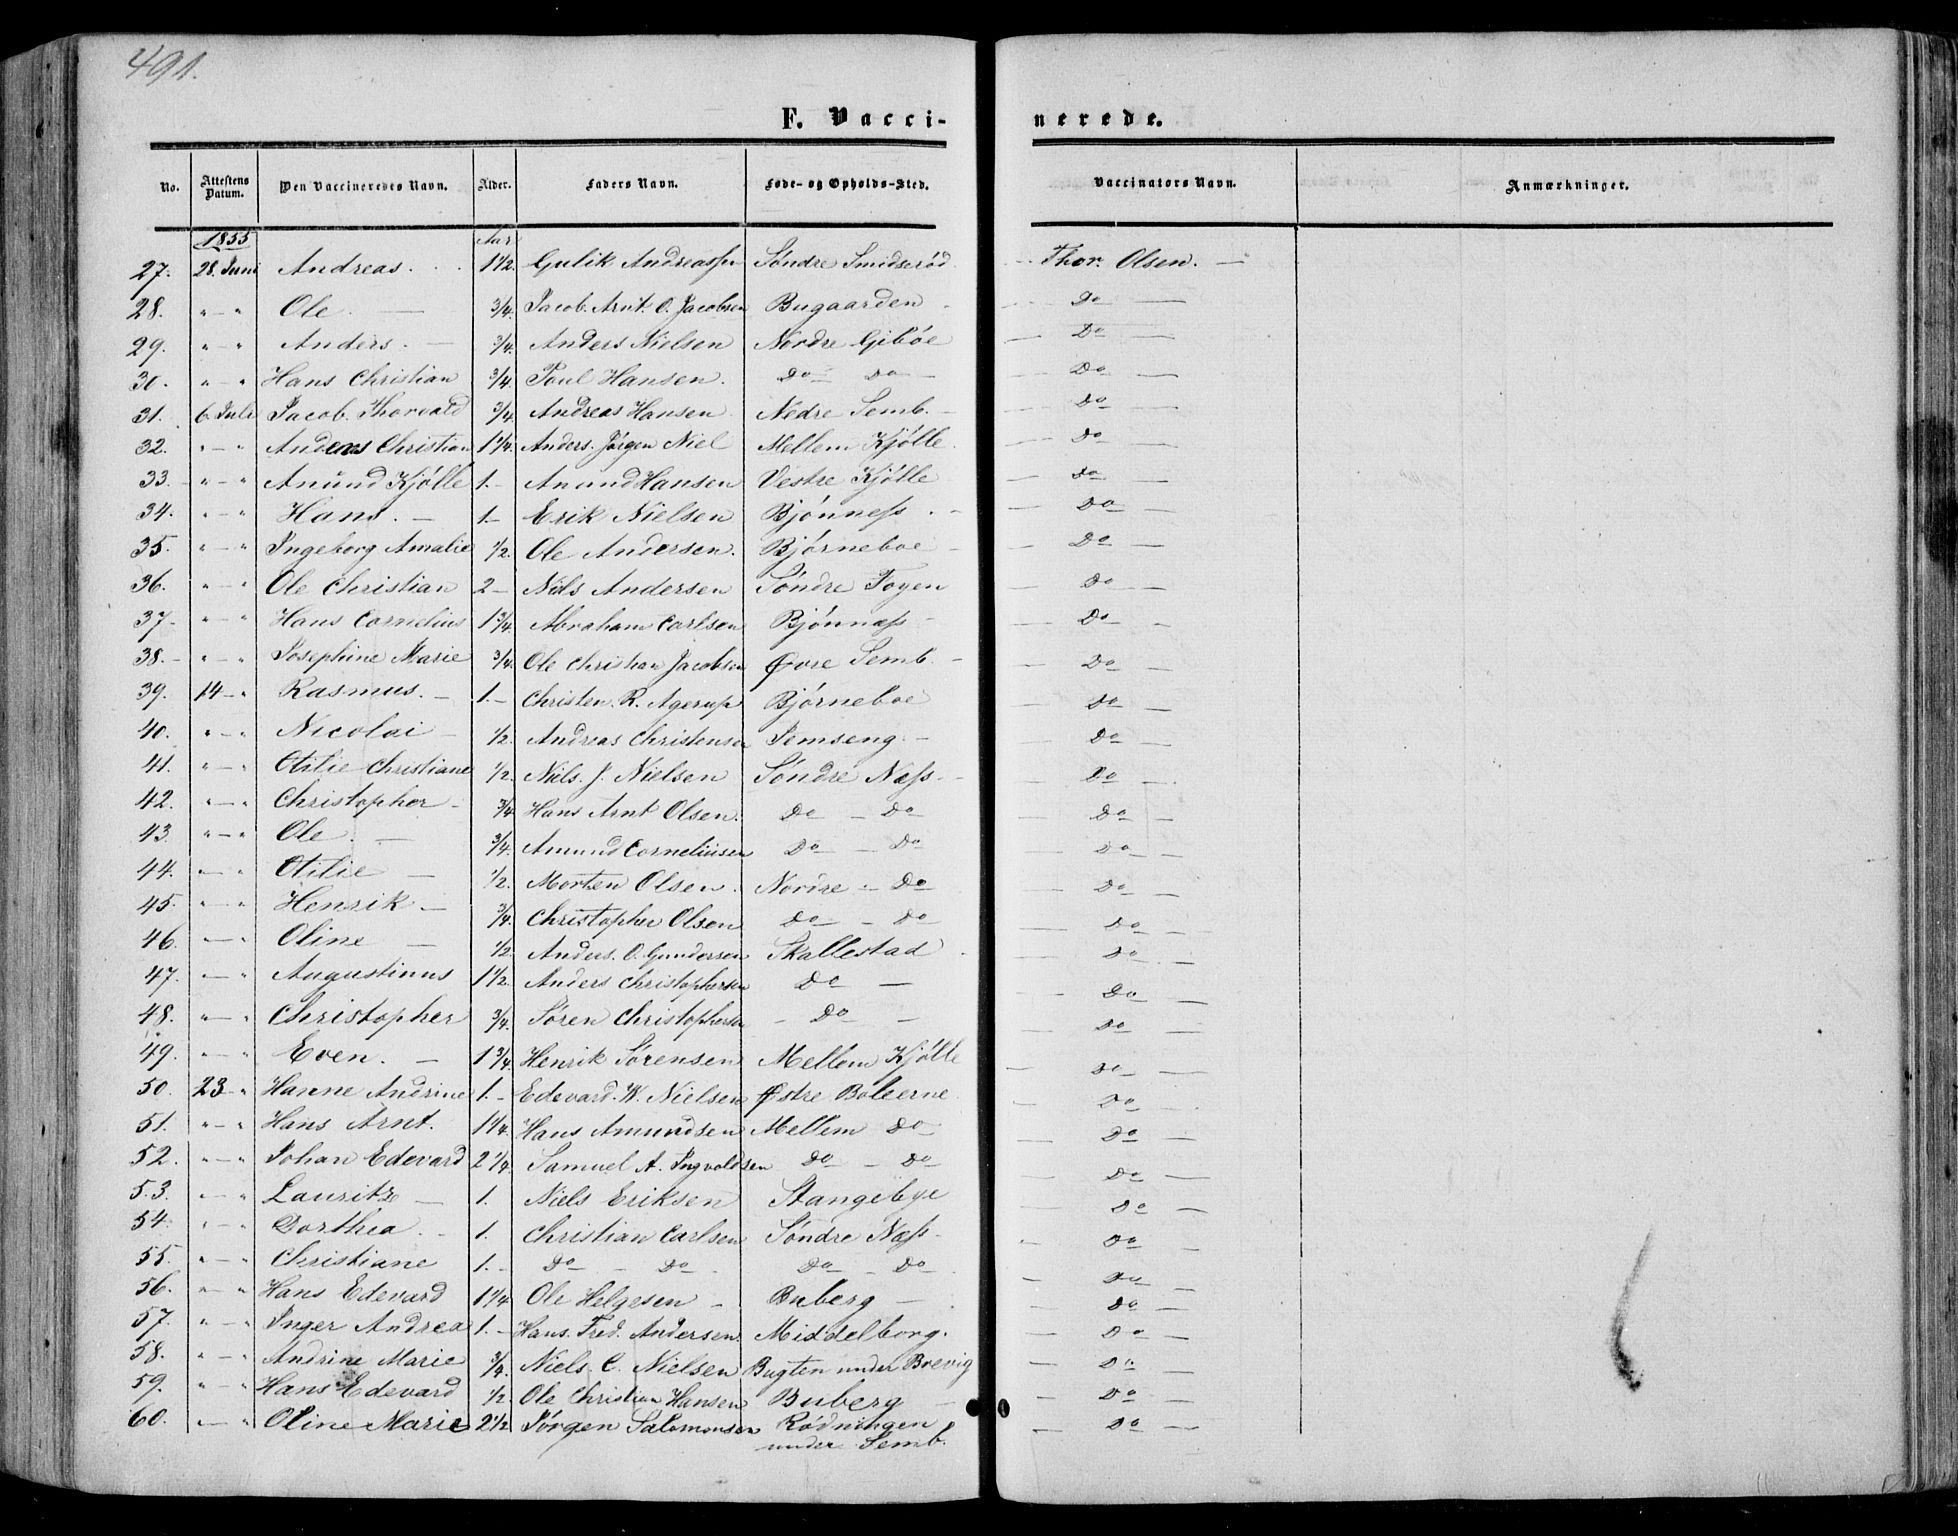 491.
F. Vacci-nerede.
No. Attestens Datum. Den Vaccineredes Navn. Alder. Faders Navn. Føde- og Opholds-Sted. Vaccinators Navn. Anmærkninger.
1855 Aar
27. 28. Juni Andreas. 1 1/2 Gulik Andreassen Søndre Smidsrød Thor. Olsen.
28. " - " Ole. 3/4. Jacob. Arnt. O. Jacobsen Bugaarden Do
29. " - " Anders. 3/4. Anders Nielsen Nordre Gibøe Do
30. " - " Hans Christian 3/4. Poul Hansen. Do Do Do
31. 6. Juli Jacob. Thorvald 3/4. Andreas Hansen Nedre Semb. Do
32. " - " Anders Christian 1 1/4. Anders. Jørgen Niel Mellem Kjølle. Do
33. " - " Anund Kjølle 1. - Anund Hansen Vestre Kjølle Do
34. " - " Hans. 1. - Erik Nielsen Bjønness. Do
35. " - " Ingeborg Amalie 1/2. Ole Andersen. Bjørneboe Do
36. " - " Ole Christian 2 - Niels Andersen Søndre Toyen Do
37. " - " Hans Cornelius 1 3/4. Abraham Carlsen Bjønnæss Do
38. " - " Josephine Marie 3/4. Ole Christian Jacobsen Øvre Semb. Do
39. 14 - " Rasmus. 1. - Christen. R. Agerup Bjørneboe Do
40. " - " Nicolai 1/2. Andreas Christensen Jemseng. Do
41. " - " Otilie Christiane 1/2 Niels. J. Nielsen Søndre Næss. Do
42. " - " Christopher 3/4 Hans Arnt Olsen. Do - Do Do
43 " - " Ole. 3/4. Amund Corneliusen Do - Do Do
44. " - " Otilie 1/2. Morten Olsen. Nordre - Do Do
45. " - " Henrik 3/4. Christopher Olsen Do - Do Do
46. " - " Oline 1/2 Anders. O. Gundersen Skallestad Do
47. " - " Augustinus 1 1/2. Anders Christophersen Do Do
48. " - " Christopher 3/4. Søren Christophersen Do Do
49. " - " Even. 1 3/4. Henrik Sørensen Mellem Kjølle Do
50. 23 - " Hanne Andrine 1. - Edevard. W. Nielsen Østre Bolærne. Do
51. " - " Hans Arnt. 1 1/4. Hans Amundsen Mellem Do Do
52. " - " Johan Edevard 2 1/4. Samuel A. Ingvoldsen Do - Do Do
53. " - " Lauritz 1. Niels Eriksen Stangebye Do
54. " - " Dorthea 1. Christian Carlsen Søndre Næss. Do
55. " - " Christiane 1. - Do - Do Do - Do Do
56. " - " Hans Edevard 1 1/4 Ole Helgesen Buberg Do
57. " - " Inger Andrea 1. - Hans. Fred. Andersen Middelborg. Do
58. " - " Andrine Marie 3/4. Niels. C. Nielsen Bugten under Brevig Do
59. " - " Hans Edevard 1/2. Ole Christian Hansen Buberg Do
60. " - " Oline Marie 2 1/2 Jørgen Salomonsen Rødningen Do
under Semb.